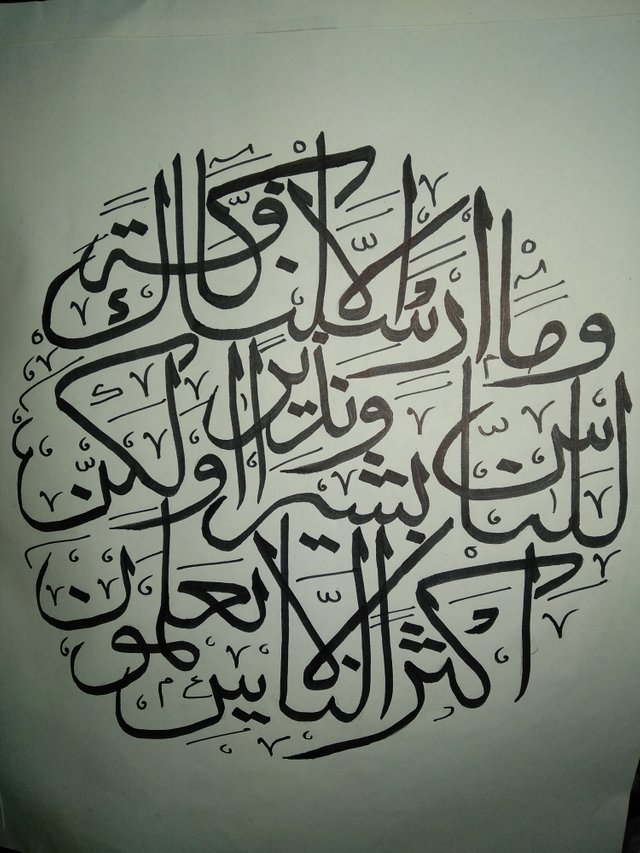 وما ارسلناك الا كافّة
للنّاس بشيرا ونذيرا ولكنّ
اكثر النّاس لا يعلمون